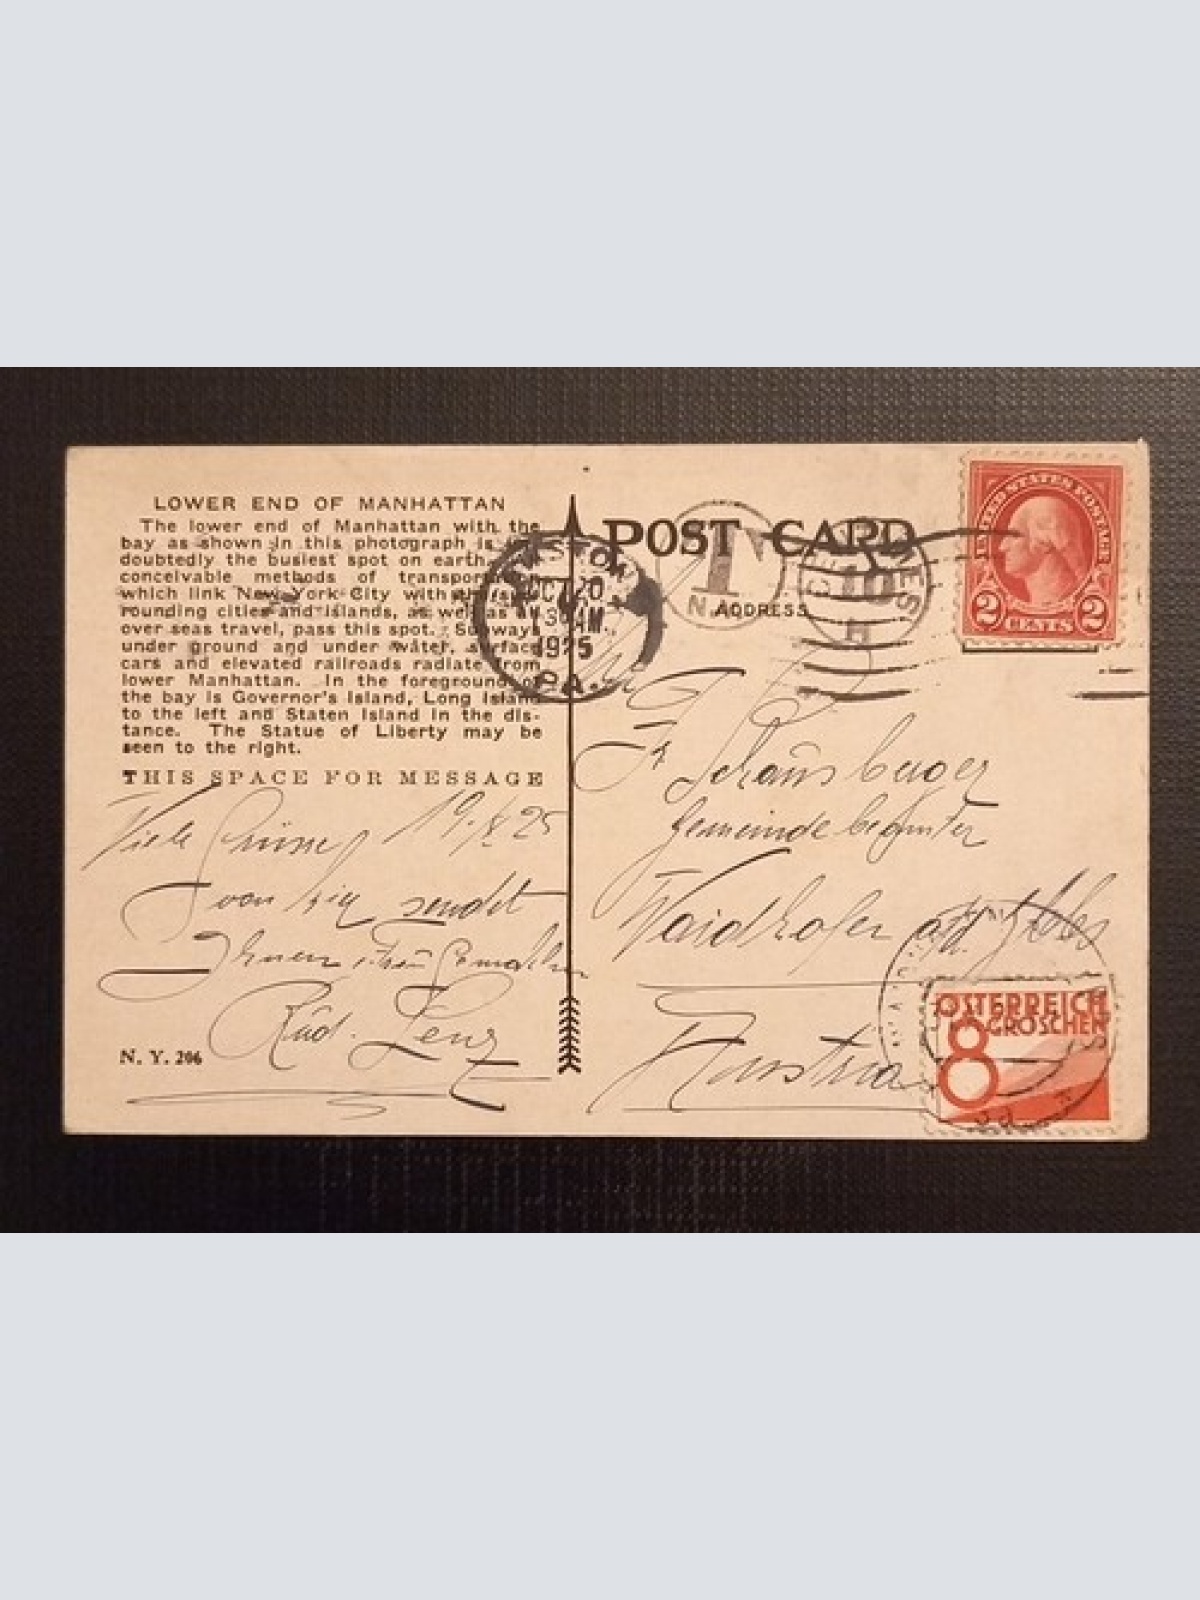 LOWER END OF MANHATTAN
The lower end of Manhattan with the
bay as shown in this photograph is
doubtedly the busiest spot on earth.
conceivable methods of
which link New York City with
rounding cities and islands, as well as
over seas travel, pass this spot. Subways
under ground and under water, surface
cars and elevated railroads radiate from
lower Manhattan. In the foreground of
the bay is Governor's Island, Long Island
to the left and Staten Island in the dis-
tance. The Statue of Liberty may be
seen to the right.
THIS SPACE FOR MESSAGE
Viele Grüsse 19. X 25
von hier sendet
Ihnen
Rud. Lenz
N. Y. 206
OCT 20
AM
1925
PA.
POST CARD
ADDRESS
T
N.
UNITED STATES POSTAGE
2 CENTS 2
Gemeindebeamter
Waidhofen a/d. Ybbs
Austria
ÖSTERREICH
8 GROSCHEN